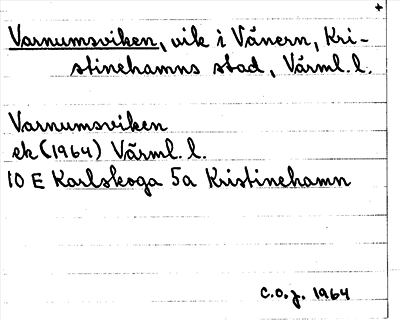 Varnumsviken, vik i Vänern, Kri-
stinehamns stad, Värml. l.
Varnumsviken
ek (1964) Värml. l.
10 E Karlskoga 5a Kristinehamn
C.O.J. 1964